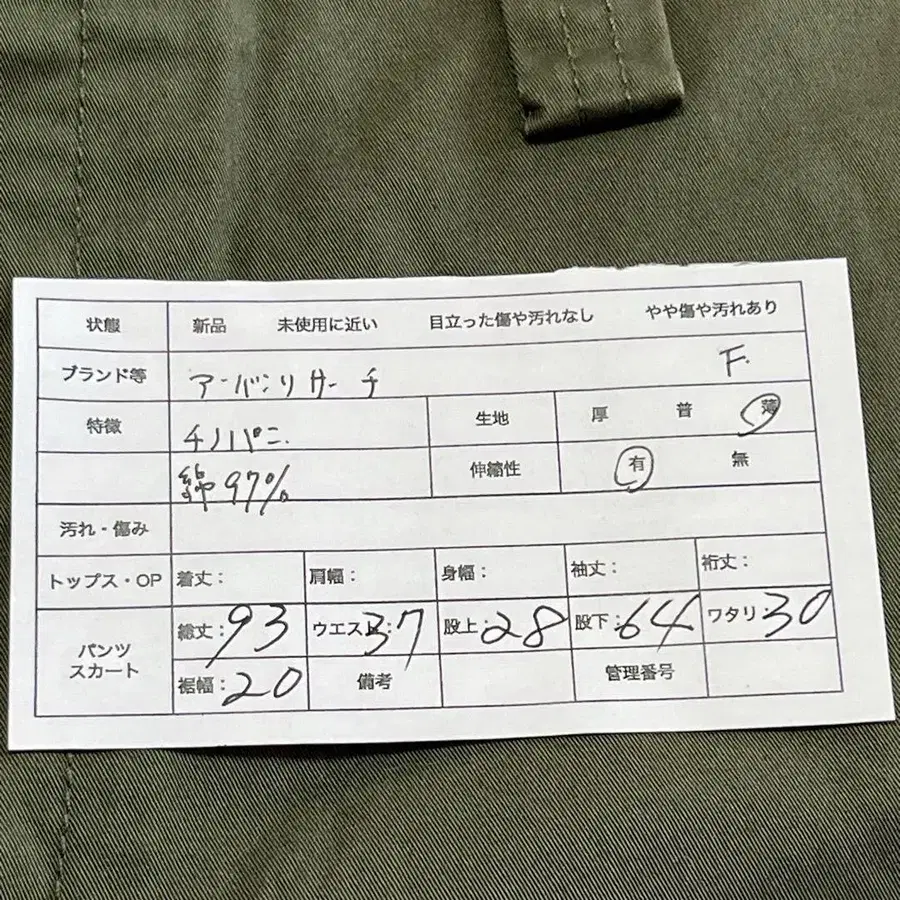 状態 新品 未使用に近い 目立った傷や汚れなし やや傷や汚れあり
ブランド等 アーバンリサーチ F.
特徴 チノパン. 生地 厚 普 薄
綿97% 伸縮性 有 無
汚れ・傷み
トップス・OP 着丈: 肩幅: 身幅: 袖丈: 裄丈:
パンツ スカート 総丈:93 ウエスト:37 股上:28 股下:64 ワタリ:30
裾幅:20 備考 管理番号